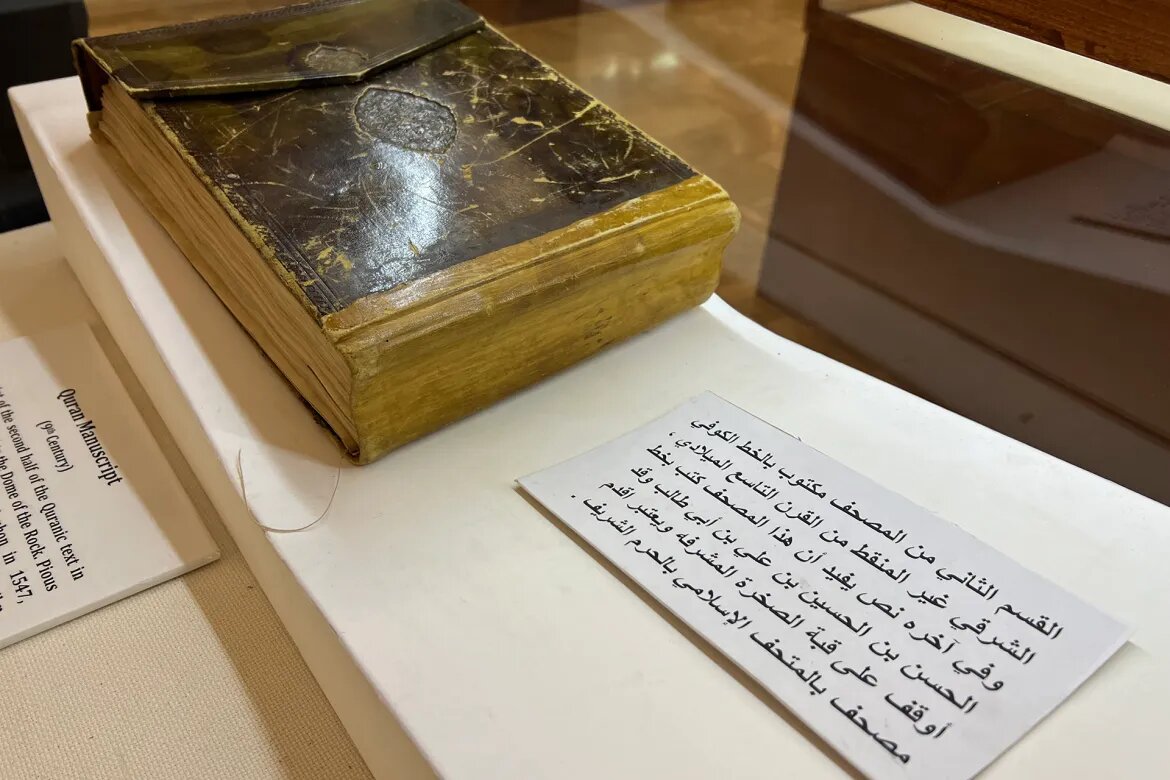 القسم الثاني من المصحف مكتوب بالخط الكوفي
الشرقي غير المنقط من القرن التاسع الميلادي ،
وفي آخره نص يفيد أن هذا المصحف كتب بخط
الحسن بن الحسين بن علي بن أبي طالب وقد
أوقف على قبة الصخرة المشرفه ويعتبر اقدم
مصحف بالمتحف الإسلامي بالحرم الشريف .
Quran Manuscript
(9th Century)
of the second half of the Quranic text in
the Dome of the Rock, Pious
in 1547,